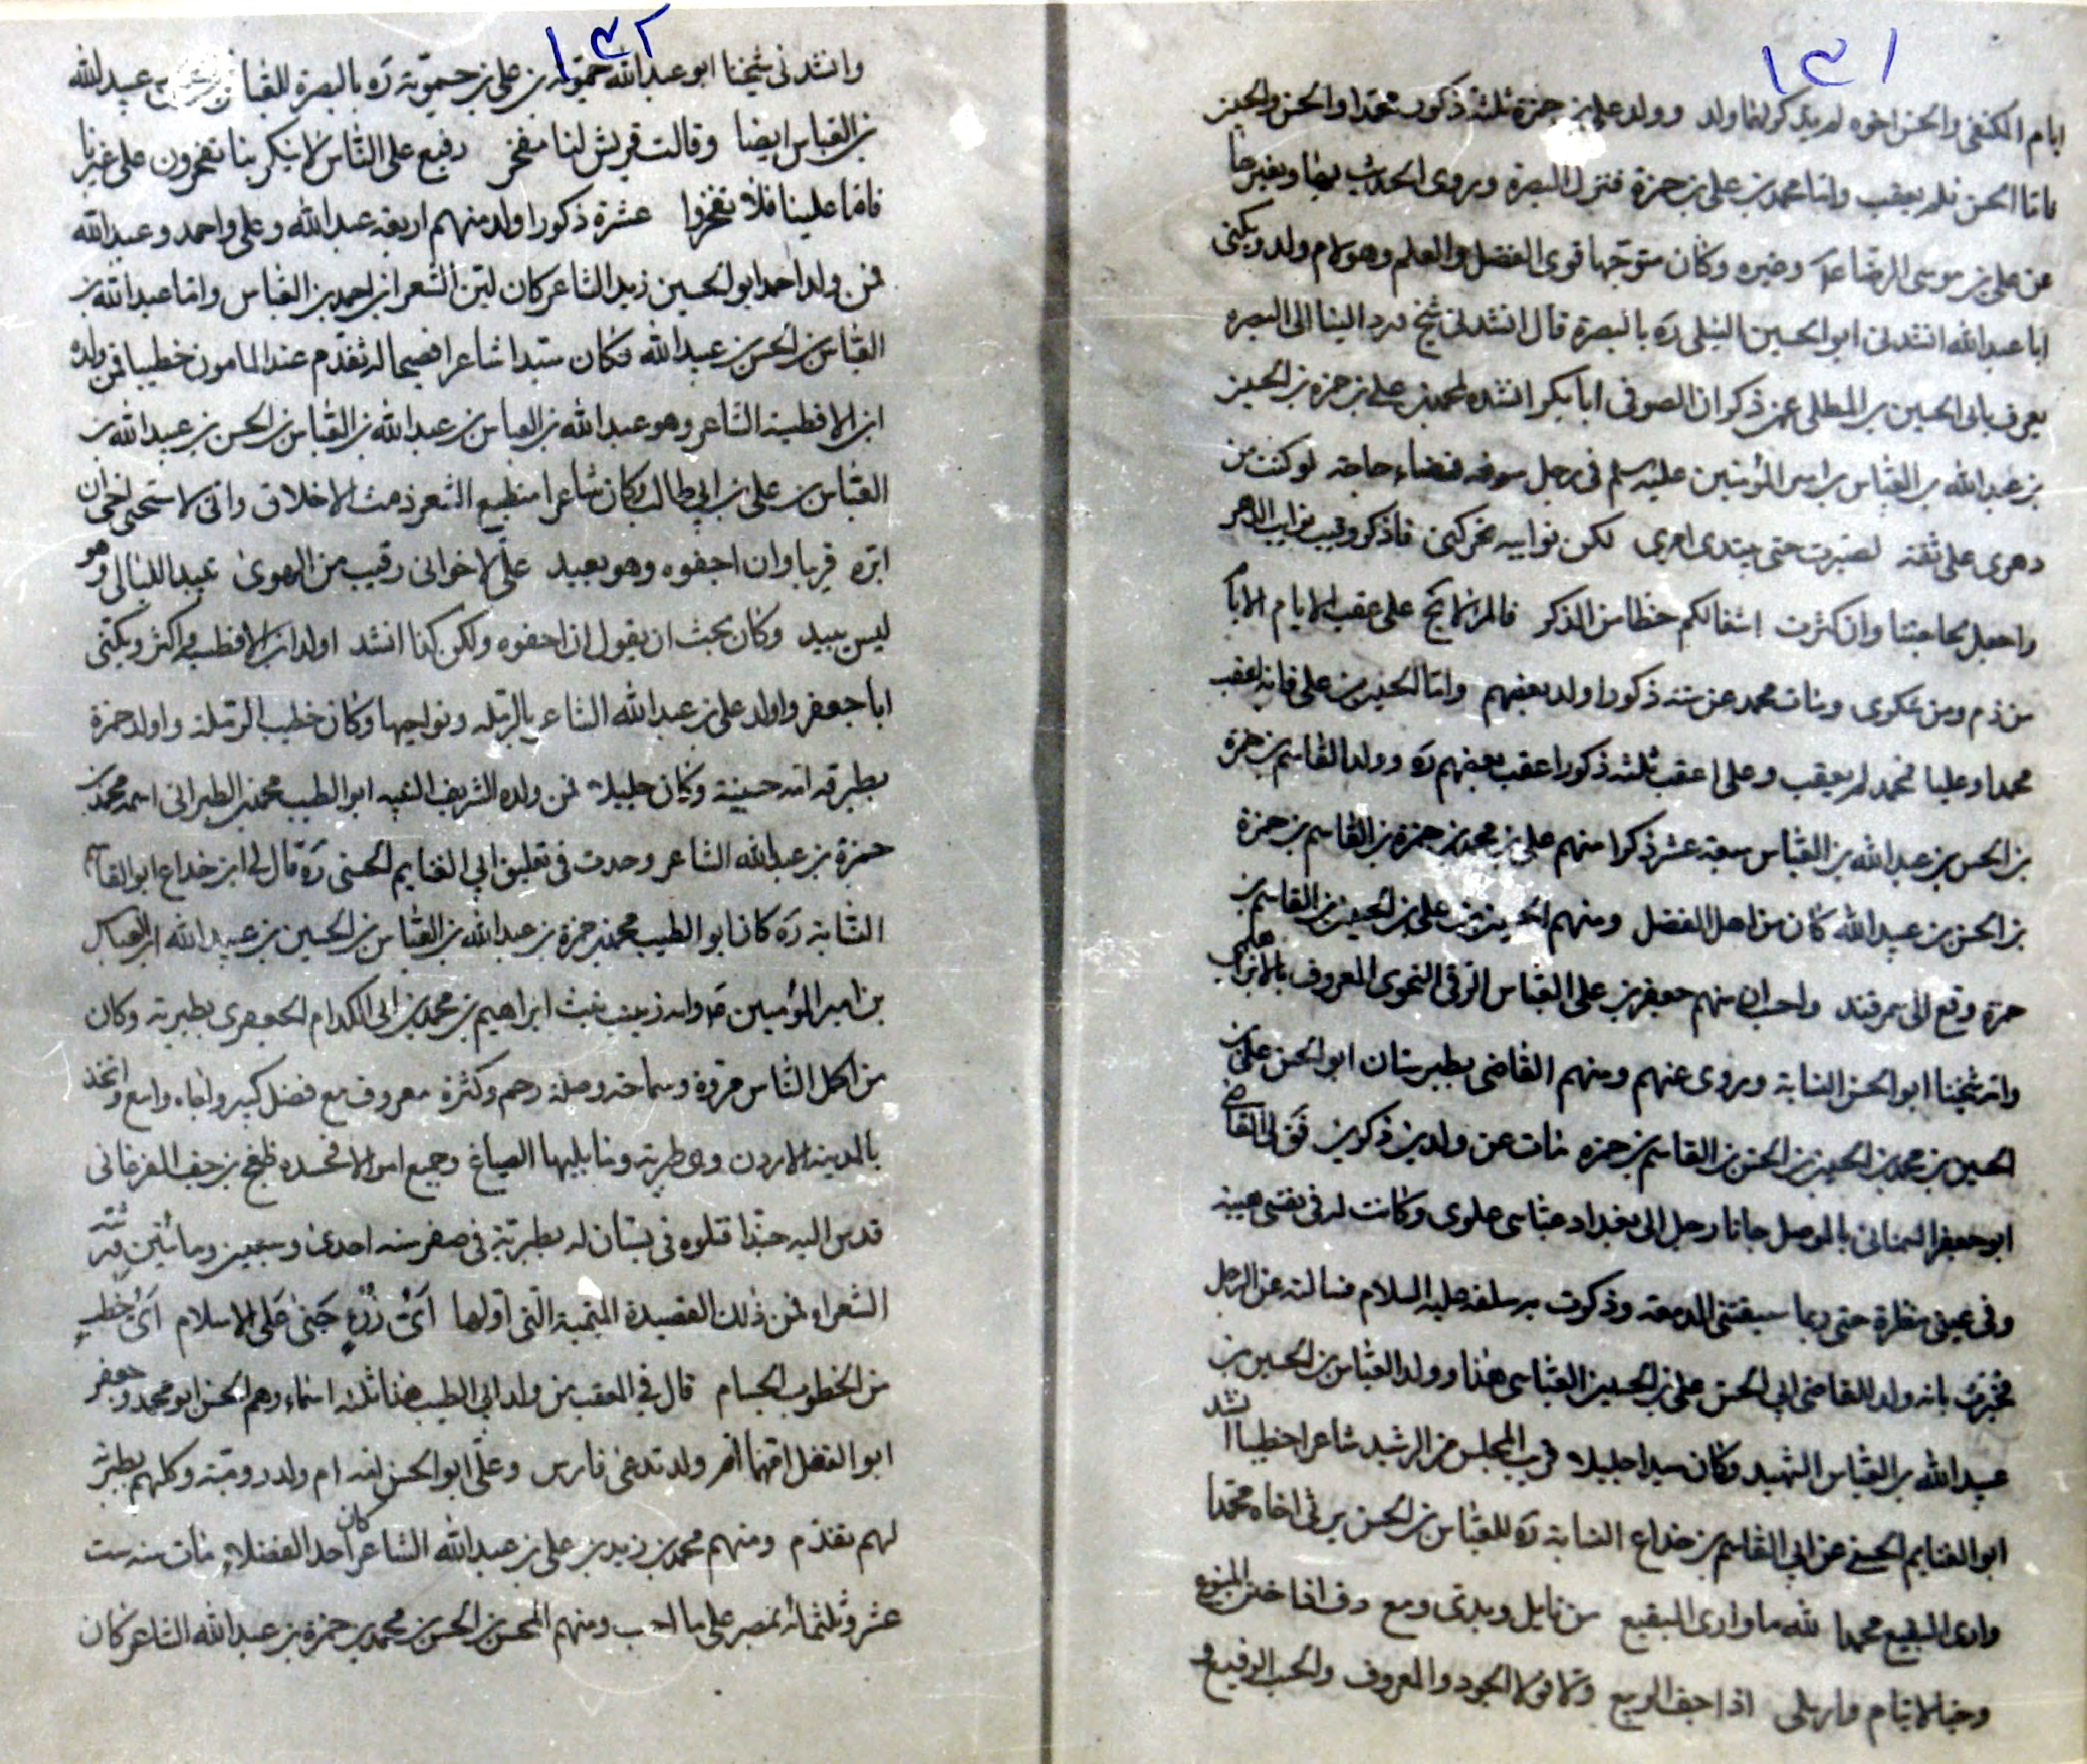 ١٣١
ايام المكتفى والحسن اخوه لم يذكر لهما ولد وولد على بن حمزة ثلثة ذكور محمدا والحسن والحسين
فاما الحسن فلم يعقب واما محمد بن على بن حمزة فنزل البصرة وروى الحديث بها وبغيرها
عن على بن موسى الرضا ع وغيره وكان متوجها قوى الفضل والعلم وهو لام ولد ويكنى
ابا عبدالله انشدنى ابو الحسين النيلى ره بالبصرة قال انشدنى شيخ ورد الينا الى البصره
يعرف بابى الحسين بن المطلى عن ذكران الصوفى ابا بكر انشده لمحمد بن على بن حمزه بن الحسين
بن عبدالله بن العباس بن امير المؤمنين عليه سلم فى رجل سوفه قضاء حاجته لو كنت من
دهرى على ثقة لصبرت حتى يبتدى امرى لكن نوايبه تحركنى فاذكر وقيت نوايب الدهر
واجعل لحاجتنا وان كثرت اشغالكم حظا من الذكر فالمرء لا يخ على عقب الايام الا
من ذم ومن شكرى ومات محمد عن سته ذكورا اولد بعضهم واما الحسين بن على فانه اعقب
محمدا وعليا فمحمد لم يعقب وعلى اعقب ثلثه ذكورا عقب بعضهم ره وولد القاسم بن حمزة
بن الحسن بن عبدالله بن العباس سبعة عشر ذكرا منهم على بن محمد بن حمزة بن القاسم بن حمزة
بن الحسن بن عبيدالله كان من اهل الفضل ومنهم الحسين بن على بن الحسين بن القاسم بن
حمزة وقع الى سمرقند واحب ان منهم جعفر بن على العباس الرقى النحوى المعروف
وانه شيخنا ابو الحسن النسابة وروى عنهم ومنهم القاضى بطبرستان ابو الحسن على بن
الحسين بن محمد بن الحسين بن الحسن بن القاسم بن حمزه مات عن ولدين ذكرين فق لى القاضى
ابو جعفر السمنانى بالموصل جانا رجل الى بغداد عباسى علوى وكانت له فى نفسى هيبته
وفى عينى منظرة حتى ربما سبقتنى الدمعه وذكرت به سلفه عليه السلام فسالته عن الرجل
فخبرت بانه ولد القاضى ابى الحسن على بن الحسين العباسى هذا وولد العباس بن الحسين بن
عبيدالله بن العباس الشهيد وكان سيدا جليلا قريب المجلس من الرشيد شاعرا خطيبا انشد
ابو الغنايم الحسنى عن ابى القاسم بن خداع النسابة ره للعباس بن الحسن يرثى اخاه محمدا
وارى البقيع محمدا لله ما وارى البقيع من نايل ويدى ومع رف اذا ضن المنوع
وحيا لايتام وارملى اذا جف الربيع ولا فول الجود والمعروف والحسب الرفيع و
١٣٢
وانشدنى شيخنا ابو عبدالله حمويه بن على بن حمويه ره بالبصرة للعباس بن عبيدالله
بن العباس ايضا وقالت قريش لنا مفخر رفيع على الناس لا ينكر بنا تفخرون على غيرنا
فاما علينا فلا تفخروا عشرة ذكورا اولد منهم اربعه عبدالله وعلى واحمد وعبيدالله
فمن ولد احمد ابو الحسين زيد الشاعر كان لين الشعر ابن احمد بن العباس واما عبدالله بن
العباس بن الحسن بن عبيدالله فكان سيدا شاعرا فصيحا له تقدم عند المامون خطيبا فمن ولده
ابن الافطسيه الشاعر وهو عبدالله بن العباس بن عبدالله بن العباس بن الحسن بن عبيدالله بن
العباس بن على بن ابى طالب وكان شاعرا منطبع الشعر دمث الاخلاق وانى لاستحيى اخى ان
ابره قريبا وان اجفوه وهو بعيد على لاخوانى رقيب من الهوى تبيد الليالى وهو
ليس يبيد وكان بحث ان يقول ان احفوه ولكن كذا انشد اولد ابن الافطسيه اكثر ويكنى
ابا جعفر واولد على بن عبدالله الشاعر بالرمله ونواحيها وكان خطيب الرملة واولد حمزة
بطبرقه امه حسينية وكان جليلا فمن ولده الشريف النبيه ابو الطيب محمد بن الطبرانى اسمه محمد بن
حمزة بن عبدالله الشاعر وحدث فى تعليق ابى الغنايم الحسنى ره قال لى ابن خداع ابو القاسم
النسابة ره كان ابو الطيب محمد بن حمزة بن عبدالله بن العباس بن الحسين بن عبيدالله ابن العباس
بن امير المؤمنين ع وامه زينب بنت ابراهيم بن محمد بن ابى الكدام الجعفرى بطبرية وكان
من اكمل الناس مروة وسماحة وصلة رحم وكثرة معروف مع فضل كبير وجاه واسع واتخذ
بالمدينة الاردن وهى طبرية وما يليها الضياع وجمع اموالا فحسده طغج بن جف الفرغانى
فدس اليه جندا قتلوه فى بستان له بطبرية فى صفر سنه احدى وسبعين ومائتين ورثته
الشعراء فمن ذلك القصيدة الميمية التى اولها اى رزء جنى على الاسلام اى خطب
من الخطوب الجسام قال فى العقب من ولد ابى الطيب هذا ثلثه اسماء وهم الحسن ابو محمد وجعفر
ابو الفضل امهما ام ولد تدعى فارس وعلى ابو الحسن لغه ام ولد رومية وكلهم بطبرية
لهم تقدم ومنهم محمد بن زيد بن على بن عبدالله الشاعر كان احد الفضلاء مات سنه ست
عشر وثلثمائه بمصر على ما احسب ومنهم المحسن بن الحسن بن محمد بن حمزة بن عبدالله الشاعر كان